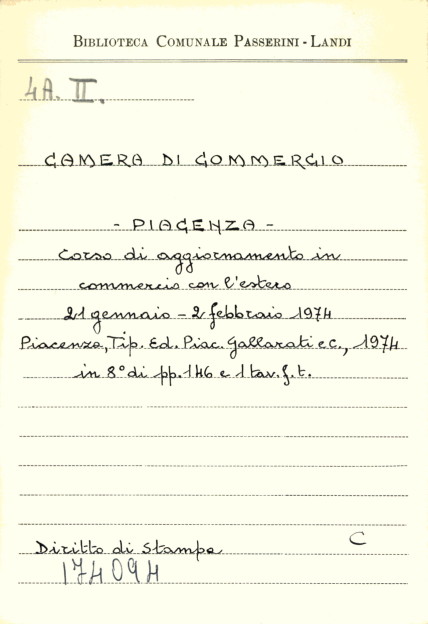 BIBLIOTECA COMUNALE PASSERINI - LANDI
4A. II.
CAMERA DI COMMERCIO
- PIACENZA -
Corso di aggiornamento in
commercio con l'estero
21 gennaio - 2 febbraio 1974
Piacenza, Tip. Ed. Piac. Gallarati e C., 1974
in 8° di pp. 146 e 1 tav. f. t.
C
Diritto di Stampa
174094